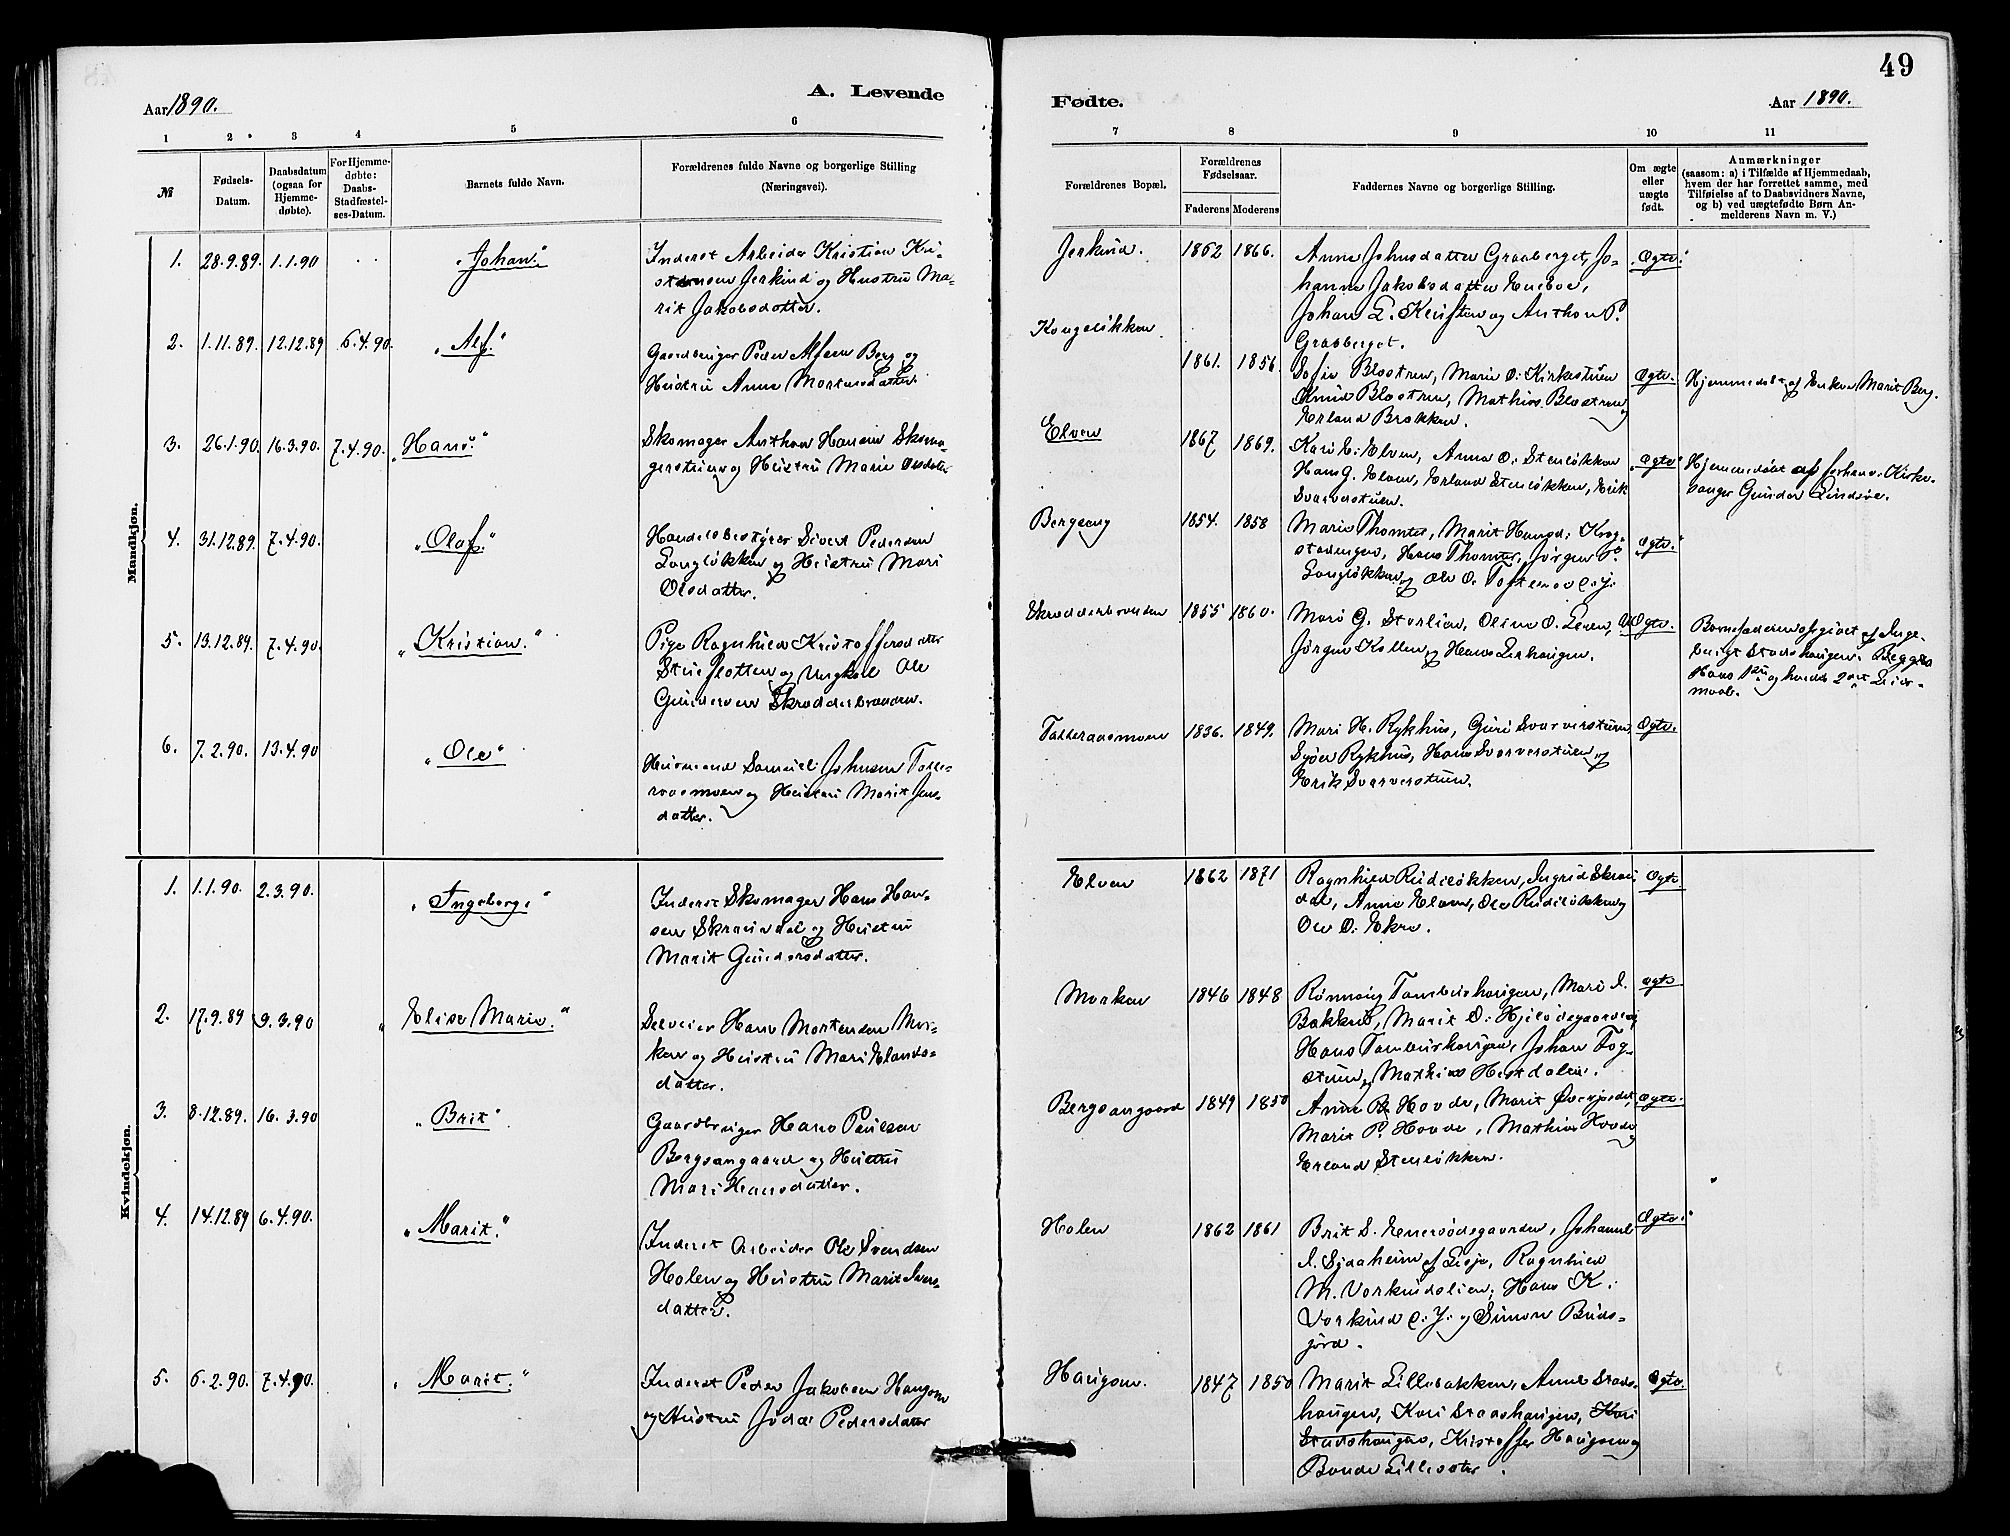 49
Aar 1890.
A. Levende
Fødte.
Aar 1890.
1 2 3 4 5 6
7 8 9 10 11
№
Fødsels-
Datum.
Daabsdatum
(ogsaa for
Hjemme-
døbte).
For Hjemme-
døbte:
Daabs-
Stadfæstel-
ses-Datum.
Barnets fulde Navn.
Forældrenes fulde Navne og borgerlige Stilling
(Næringsvei).
Forældrenes Bopæl.
Forældrenes
Fødselsaar.
Faderens Moderens
Faddernes Navne og borgerlige Stilling.
Om ægte
eller
uægte
født.
Anmærkninger
(saasom: a) i Tilfælde af Hjemmedaab,
hvem der har forrettet samme, med
Tilføielse af to Daabsvidners Navne,
og b) ved uægtefødte Børn An-
melderens Navn m. V.)
Mandkjøn.
1. 28.9.89. 1.1.90 "Johan."
Inderst Arbeider Kristian Kri-
stensen Jerkind og Hustru Ma-
rit Jakobsdatter.
Jerkind. 1862 1866.
Anne Johnsdatter Graaberget, Jo-
hanne Jakobsdatter Eneboe,
Johan E. og Anthon P.
Graaberget.
Ægte.
2. 1.11.89. 12.12.89 6.4.90. "Alf"
Gaardbruger Peder Alfsen Berg og
Hustru Anne Mortensdatter.
Kongsløkken 1861. 1856.
Sofie Blostren, Marie O. Kirkestuen
Blostren, Mathias Blostren og
Erland Brokken.
Ægte.
Hjemmedøbt af Enken Marit Berg.
3. 26.1.90. 16.3.90. 7.4.90. "Hans."
Skomager Anthon Hansen Skoma-
gerstuen og Hustru Marie Olsdatter
Elven 1867 1869.
Kari E. Elven, Anne O. Stenløkken
Hans G. Elven, Erland Stenløkken, Erik
Svarverstuen.
Ægte
Hjemmedøbt af forhenv. Kirke-
sanger Gunder Lindsøe.
4. 31.12.89. 7.4.90. "Olaf."
Handelsbestyrer Sivert Pedersen
Longløkken og Hustru Mari
Olsdatter.
Bergseng 1854. 1858
Marie Thomter, Marit Hansd. Krog-
stadengen, Hans Thomter, Jørgen P.
Longløkken og Ole O. Toftemo e. J.
Ægte.
5. 13.12.89. 7.4.90. "Kristian."
Pige Ragnhild Kristoffersdatter
Stueflotten og Ungkarl Ole
Gundersen Skrædderbraaten.
Skrædderbraaten 1855 1860.
Mari G. Storlien, Oline O. Leren,
Jørgen Kollen og Hans Lerhaugen.
Ægte.
Barnefaderen opgivet af Inge-
brigt Stadshaugen. Begges
Hans 1ste og hendes 2det Leier-
maal.
6. 7.2.90. 13.4.90 "Ole"
Husmand Samuel Johnsen Tolle-
raasmoen og Hustru Marit Jens-
datter.
Tolleraasmoen 1836. 1849.
Mari H. Rykhus, Guri Svarverstuen,
Syver Rykhus, Hans Svarverstuen og
Erik Svarverstuen.
Ægte.
Kvindekjøn.
1. 1.1.90. 2.3.90. "Ingeborg"
Inderst Skomager Hans Han-
sen Skravdal og Hustru
Marit Gundersdatter.
Elven 1862 1871
Ragnhild Rudiløkken, Ingrid Skrav-
dal, Anne Elven, Ole Rudiløkken og
Ole O. Ekre.
Ægte
2. 17.9.89 9.3.90 "Elise Marie."
Selveier Hans Mortensen Mor-
ken og Hustru Mari Elands-
datter.
Morken 1846 1848
Rønnaug Tamburhaugen, Mari I.
Bakken, Marit O. Hjelødegaarden,
Hans Tamburhaugen, Johan Fog-
stuen og Mathias Hestdalen.
Ægte
3. 8.12.89. 16.3.90 "Brit"
Gaardbruger Hans Paulsen
Bergsengaard og Hustru
Mari Hansdatter.
Bergsengaard 1849 1850
Anne B. Hovde, Marit Øverjordet,
Marit P. Hovde, Mathias Hovde og
Erland Stenløkken.
Ægte.
4. 14.12.89 6.4.90. "Marit."
Inderst Arbeider Ole Svendsen
Holen og Hustru Marit Ivers-
datter.
Holen 1862 1861
Brit S. Enersødegaarden, Johanne
I. Sjaaheim af Lesje, Ragnhild
M. Vorkindslien, Hans K.
Vorkind e. J. og Simon Buds-
jord.
Ægte.
5. 6.2.90. 7.4.90. "Marit."
Inderst Peder Jakobsen Haugsen
og Hustru Jøda Pedersdatter
Haugsen. 1847 1850
Marit Lillebakken, Anne Stads-
haugen, Kari Stadshaugen, Kari
Stadshaugen, Kristoffer Haugsen og
Bonde Lillesæter.
Ægte.